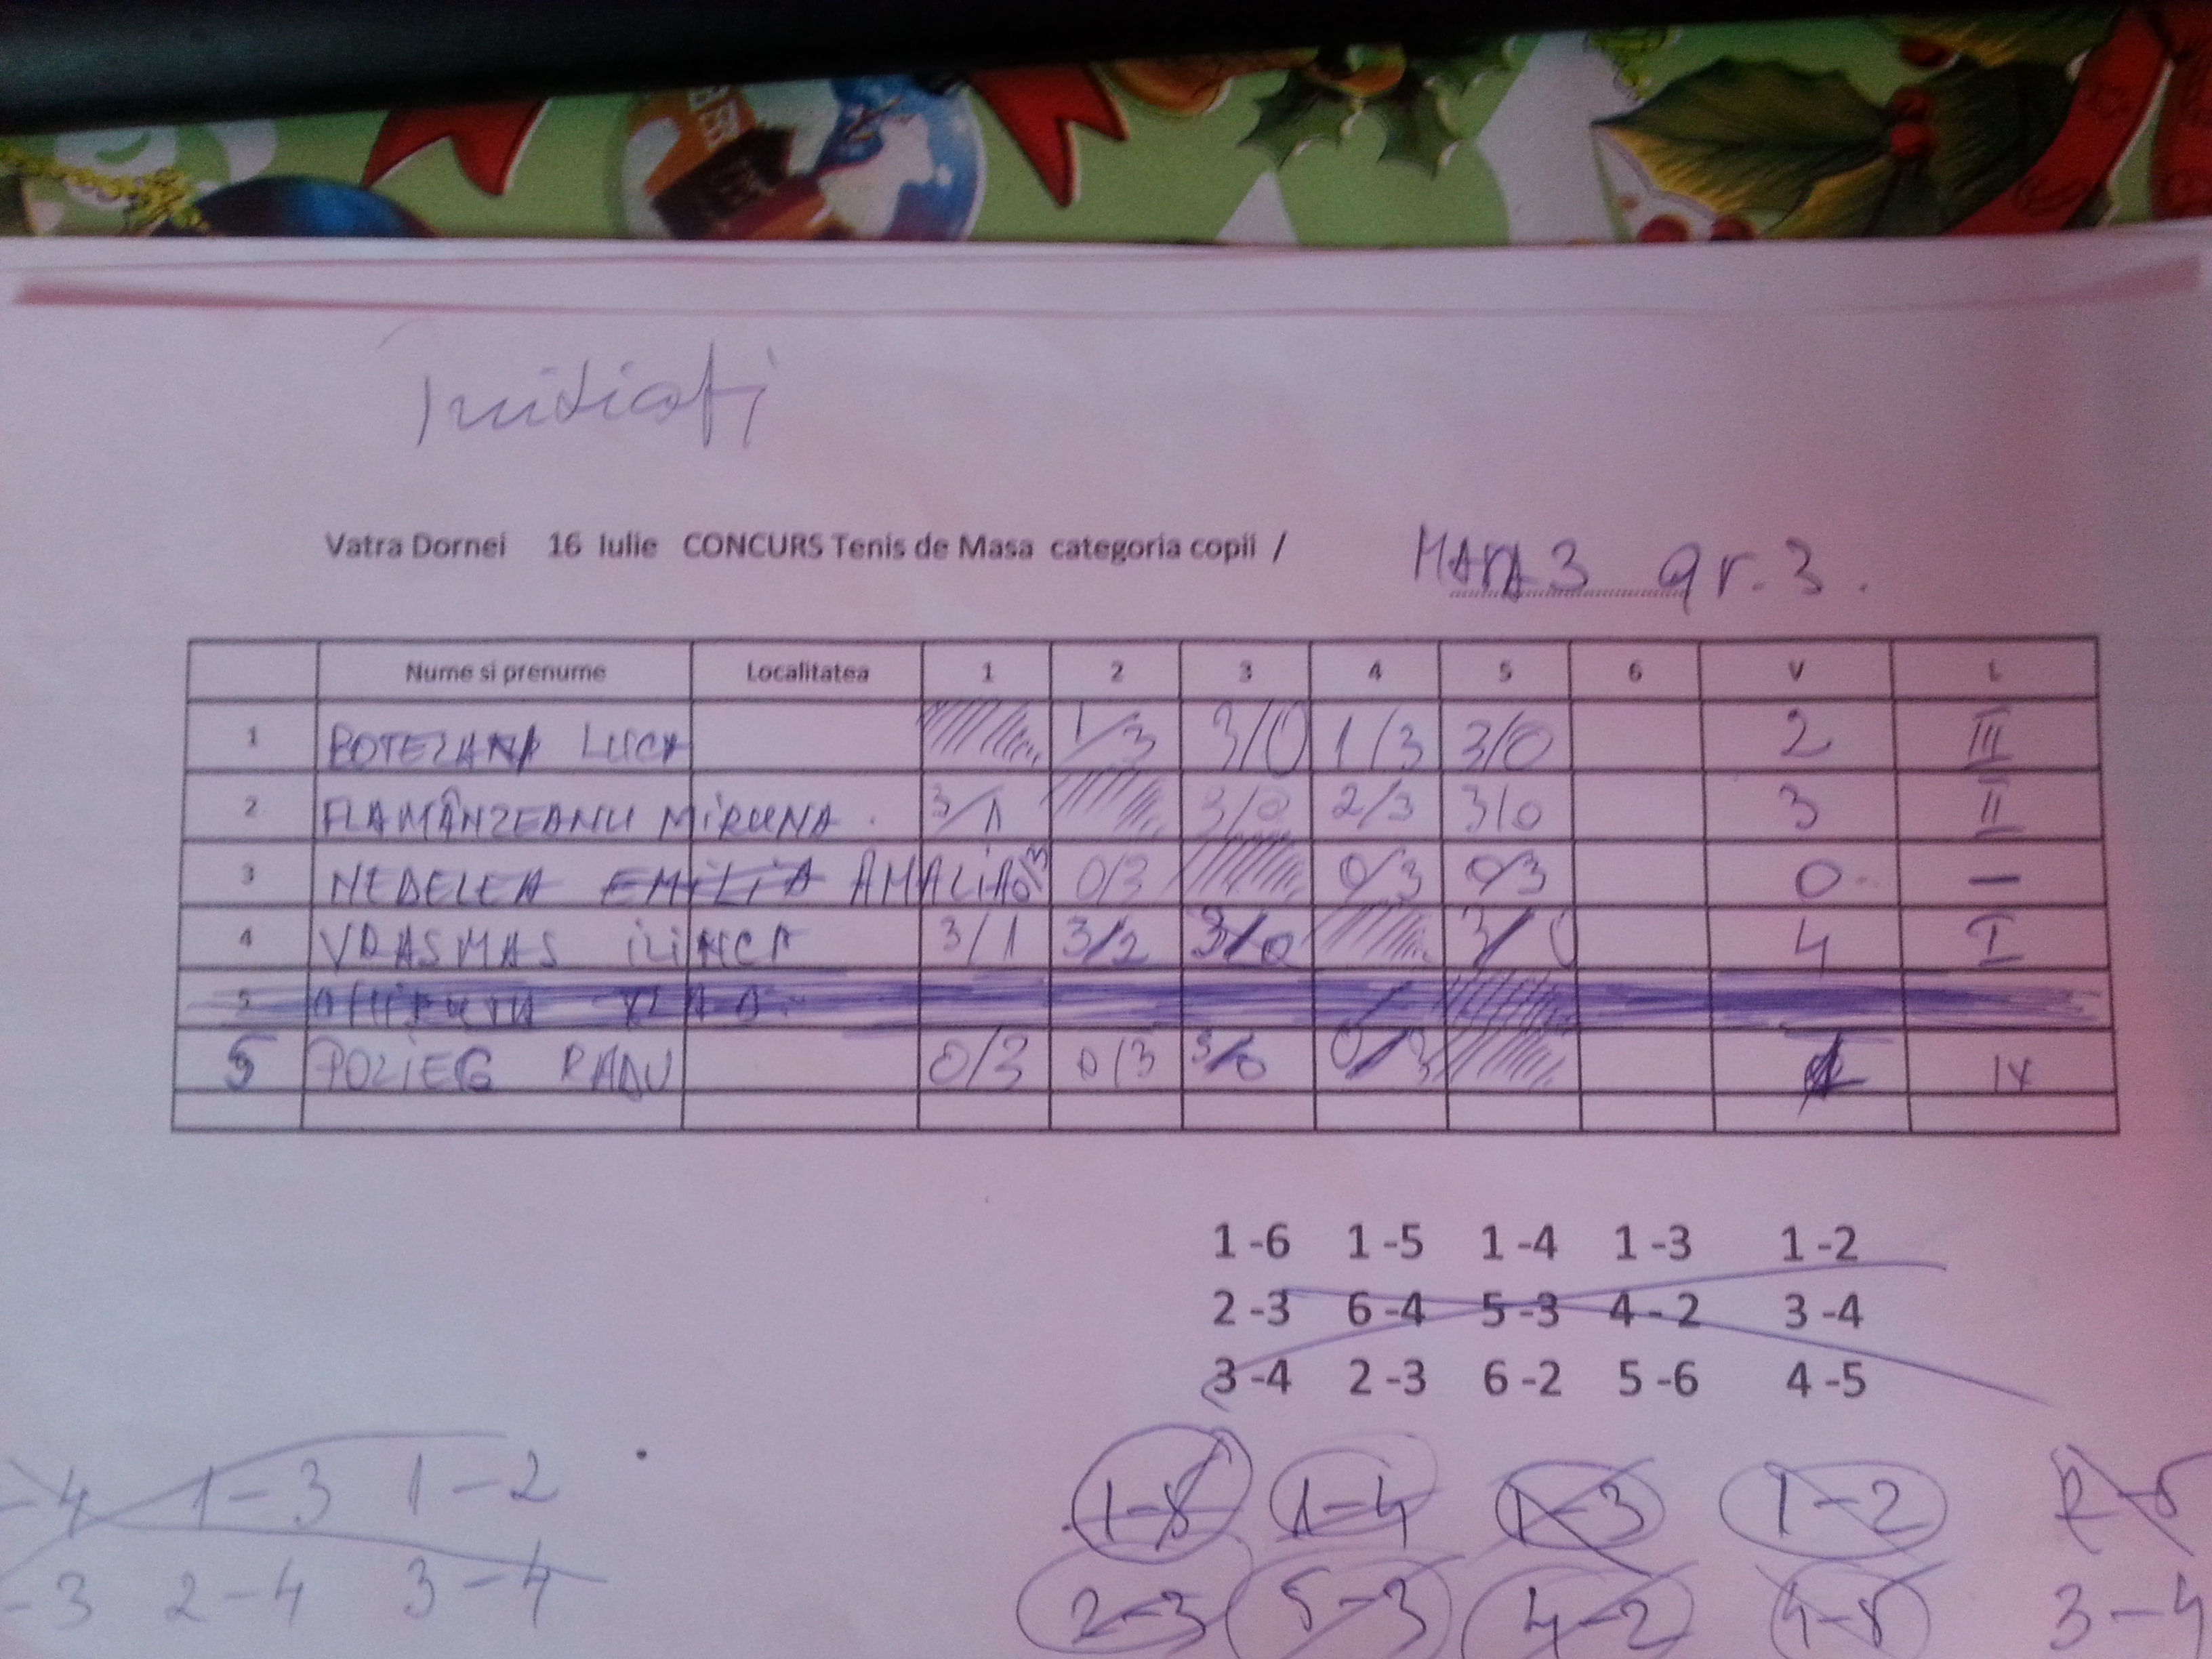 Initiați
Vatra Dornei 16 Iulie CONCURS Tenis de Masa categoria copii / MASA 3 gr. 3.
Nume si prenume Localitatea 1 2 3 4 5 6 V L
1 LUCA 1/3 3/0 1/3 3/0 2 III
2 FLAMÂNZEANU MIRUNA. 3/1 3/0 2/3 3/0 3 II
3 NEDELEA EMILIA AMALIA 0/3 0/3 0/3 0/3 0 —
4 VRASMAS ILINCA 3/1 3/2 3/0 3/0 4 I
5
5 POZIEG RADU 0/3 0/3 3/0 0/3 1 IV
1 -6 1 -5 1 -4 1 -3 1 -2
2 -3 6 -4 5 -3 4 - 2 3 -4
3 -4 2 -3 6 -2 5 -6 4 -5
-4 1-3 1-2 1-5 1-4 1-3 1-2 2-5
-3 2-4 3-4 2-3 5-3 4-2 4-5 3-4